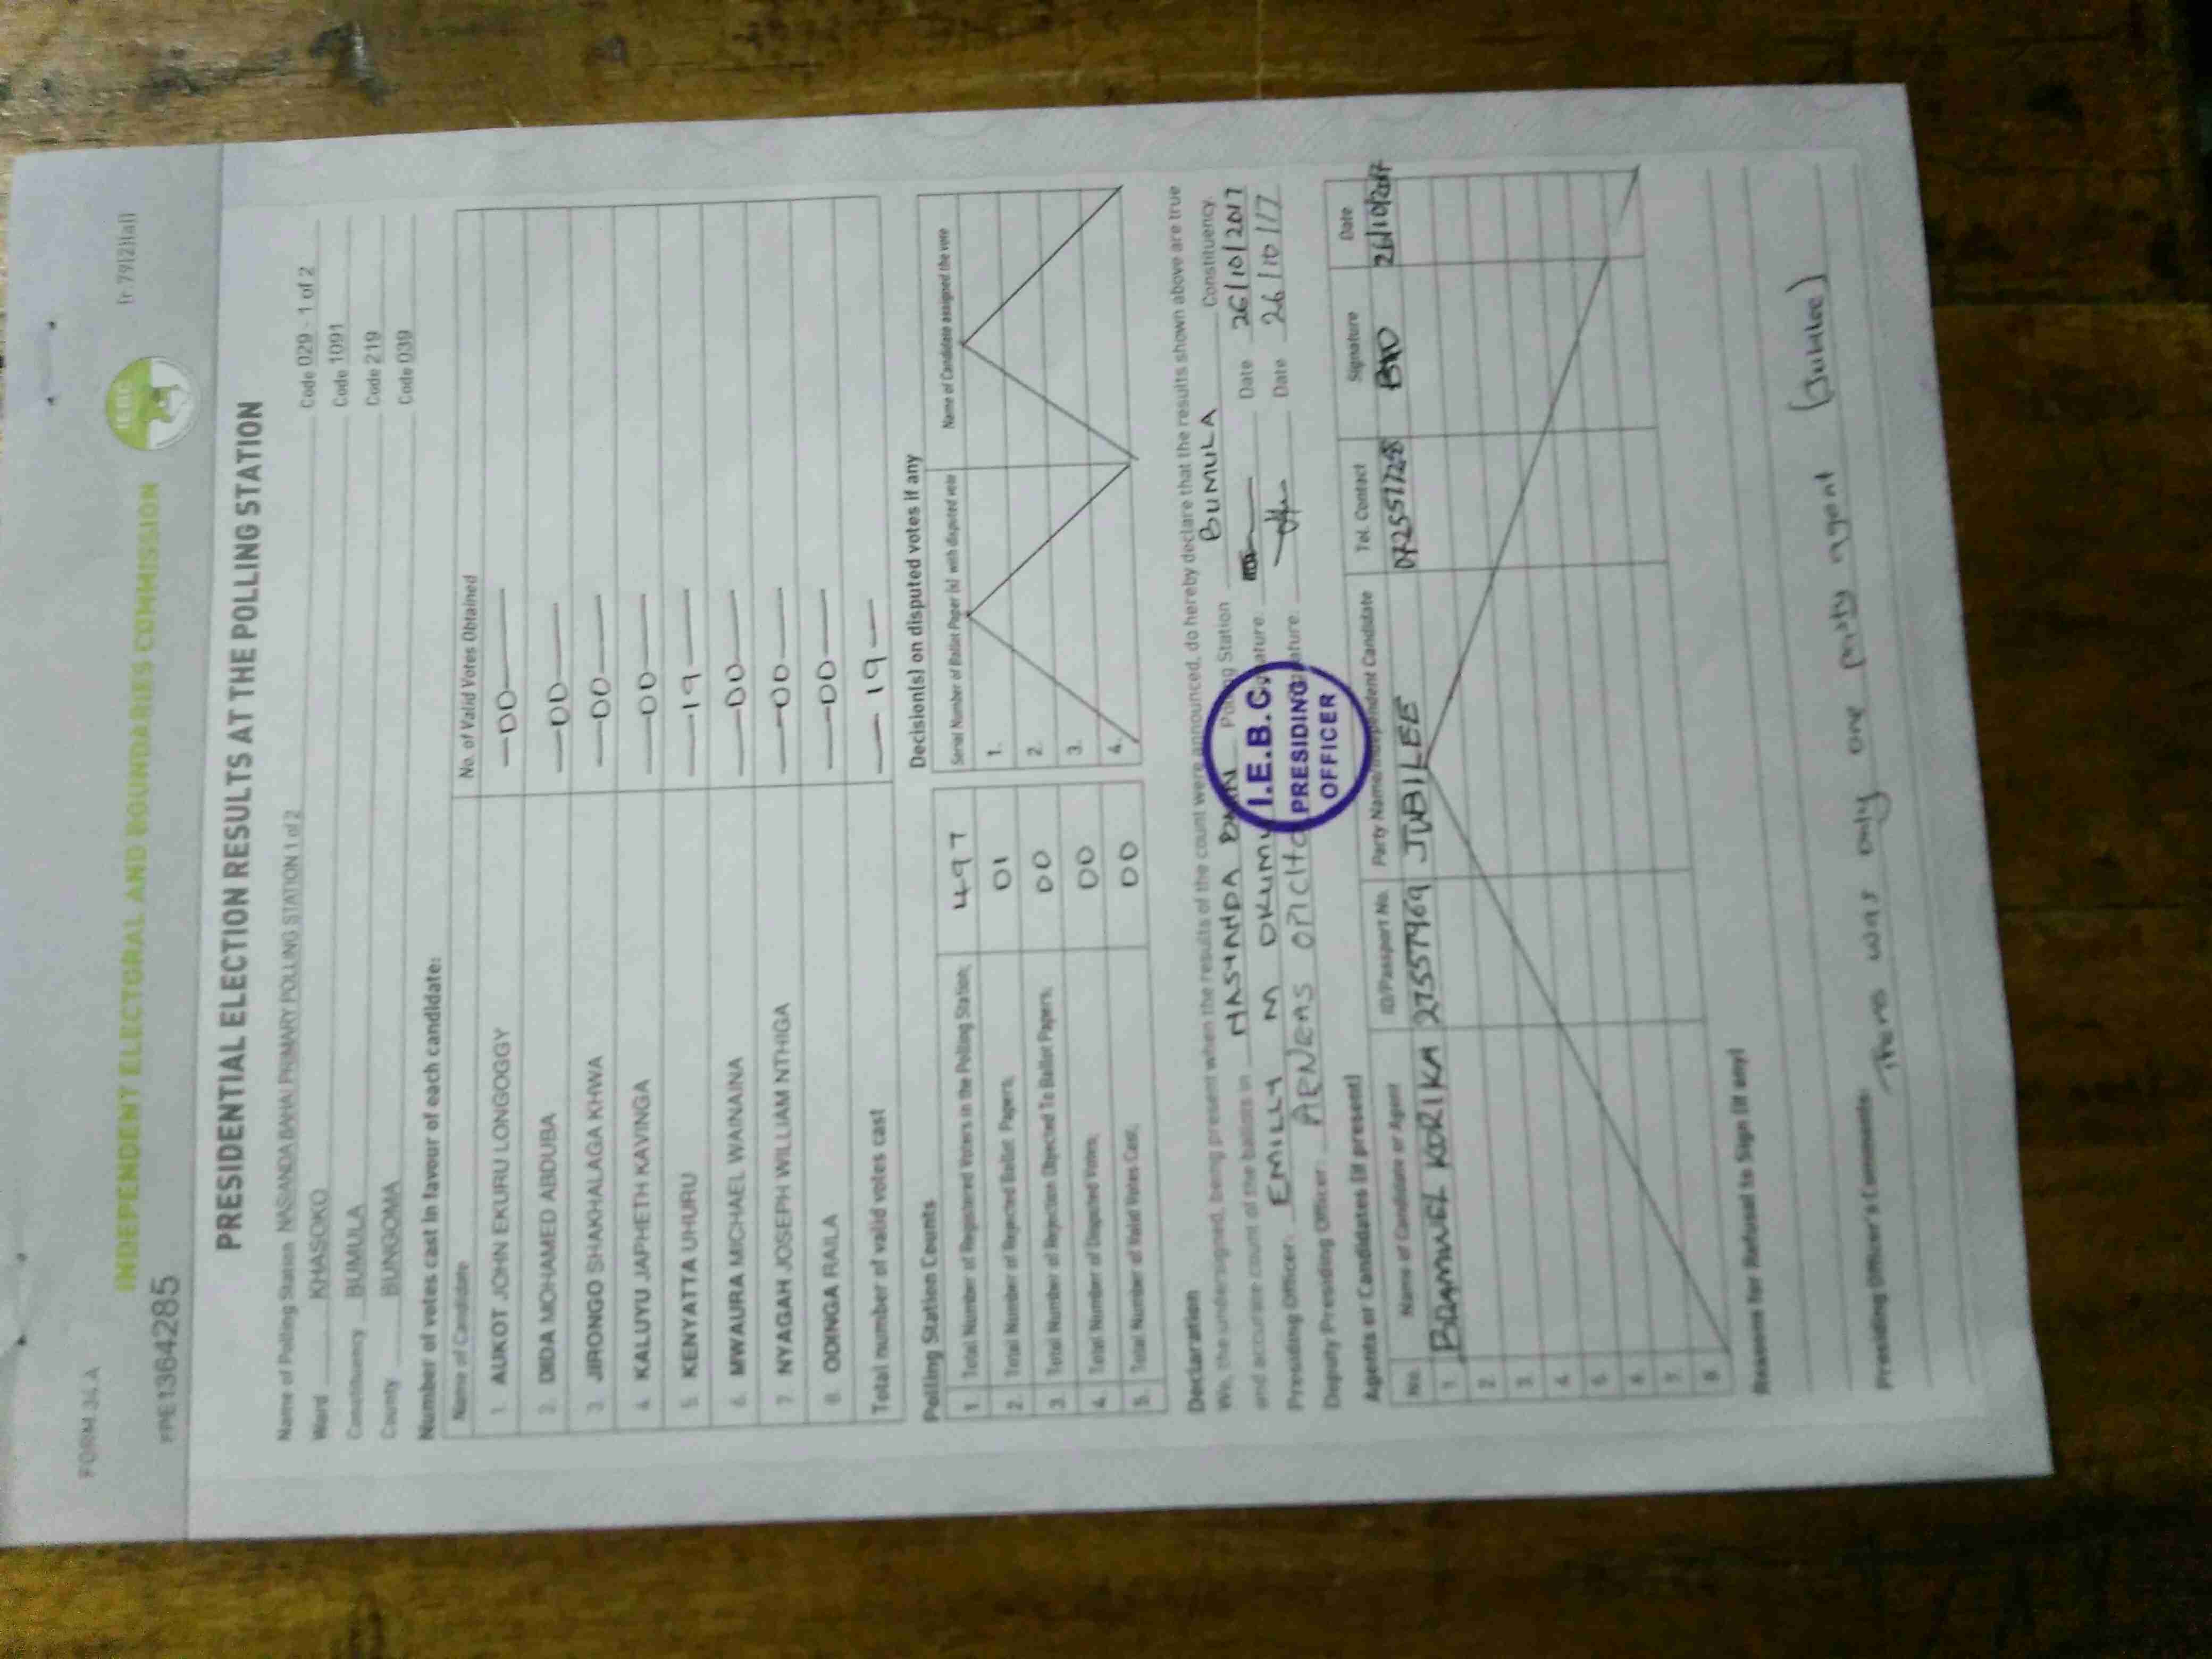 FORM 34 A
INDEPENDENT ELECTORAL AND BOUNDARIES COMMISSION
(r.79(2)(a))
IEBC
FPE1364285
PRESIDENTIAL ELECTION RESULTS AT THE POLLING STATION
Name of Polling Station NASIANDA BAHAI PRIMARY POLLING STATION 1 of 2 Code 029 - 1 of 2
Ward KHASOKO Code 1091
Constituency BUMULA Code 219
County BUNGOMA Code 039
Number of votes cast in favour of each candidate:
Name of Candidate No. of Valid Votes Obtained
1. AUKOT JOHN EKURU LONGOGGY —00—
2. DIDA MOHAMED ABDUBA —00—
3. JIRONGO SHAKHALAGA KHWA —00—
4. KALUYU JAPHETH KAVINGA —00—
5. KENYATTA UHURU —19—
6. MWAURA MICHAEL WAINAINA —00—
7. NYAGAH JOSEPH WILLIAM NTHIGA —00—
8. ODINGA RAILA —00—
Total number of valid votes cast —19—
Polling Station Counts
1. Total Number of Registered Voters in the Polling Station; 497
2. Total Number of Rejected Ballot Papers; 01
3. Total Number of Rejection Objected To Ballot Papers; 00
4. Total Number of Disputed Votes; 00
5. Total Number of Valid Votes Cast; 00
Decision(s) on disputed votes if any
Serial Number of Ballot Paper (s) with disputed vote Name of Candidate assigned the vote
1.
2.
3.
4.
Declaration
We, the undersigned, being present when the results of the count were announced, do hereby declare that the results shown above are true
and accurate count of the ballots in NASIANDA Polling Station BUMULA Constituency.
Presiding Officer: EMILLY N OKUMU Signature: Date 26/10/2017
Deputy Presiding Officer: Signature: Date 26/10/17
I.E.B.C.
PRESIDING
OFFICER
Agents or Candidates (if present)
No. Name of Candidate or Agent ID/Passport No. Party Name/Independent Candidate Tel. Contact Signature Date
1. BRAMWEL KORIKA 27557969 JUBILEE 26/10/2017
2.
3.
4.
5.
6.
7.
8.
Reasons for Refusal to Sign (if any)
Presiding Officer's Comments:
There was only one party agent (Jubilee)